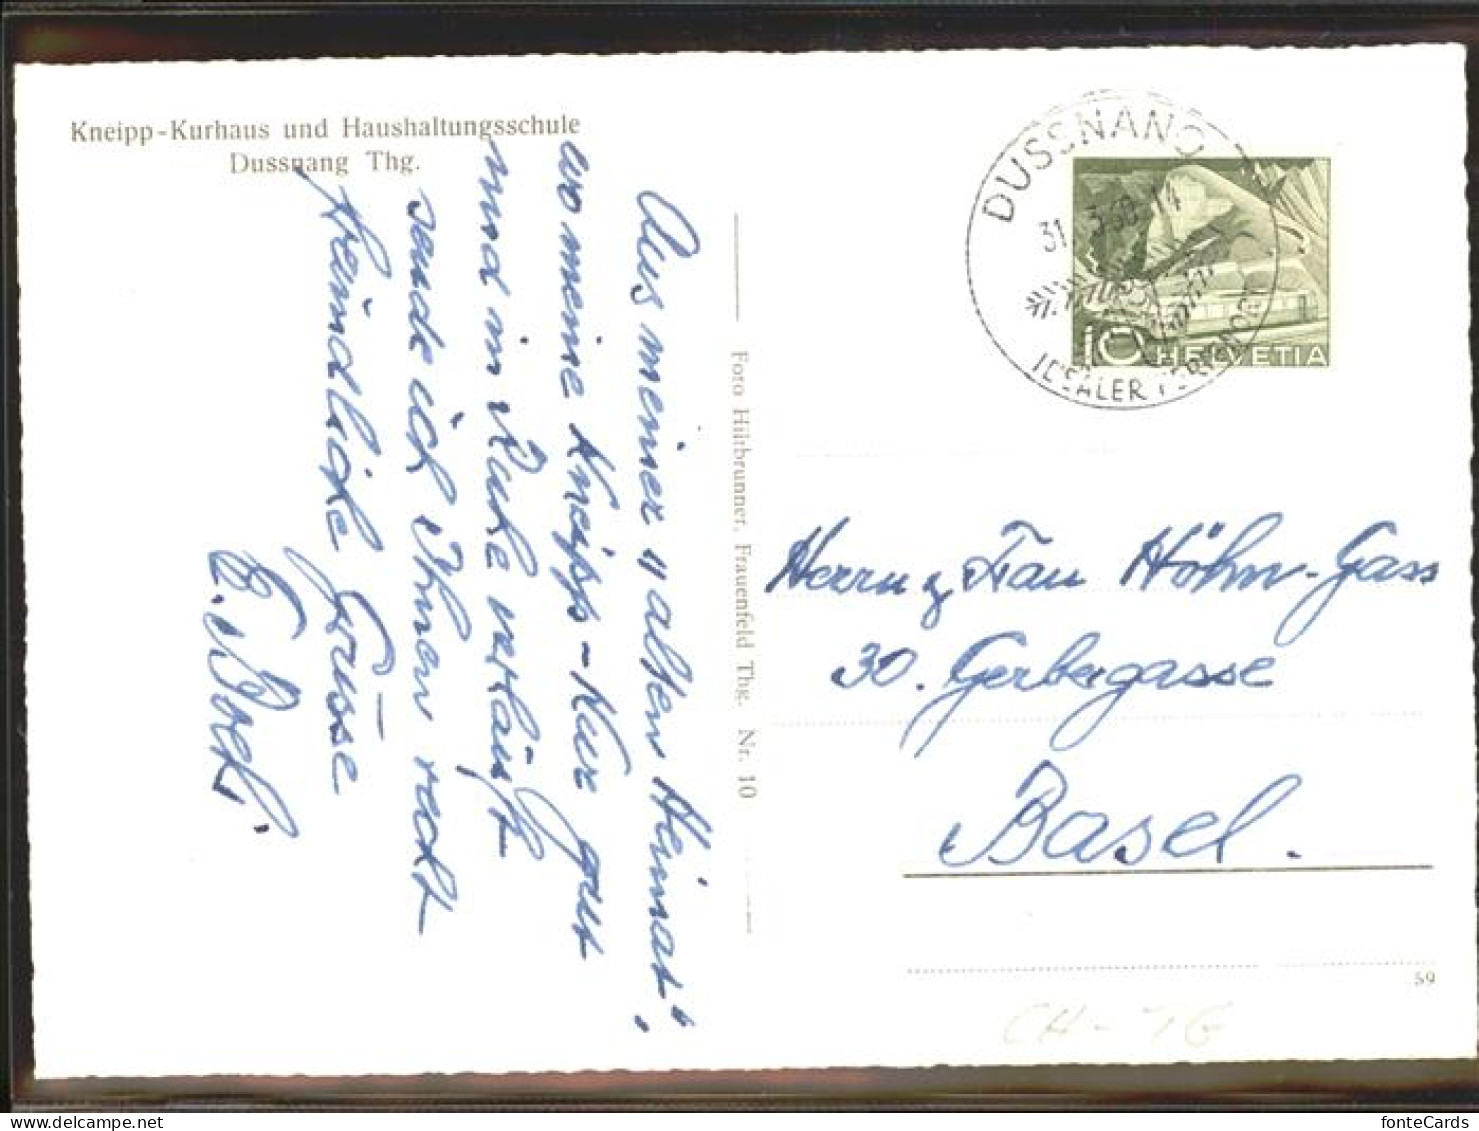 Kneipp-Kurhaus und Haushaltungsschule
Dussnang Thg.
Aus meiner "alten Heimat",
wo meine Kneipp-Kur gut
und in Ruhe verläuft
sende ich Ihnen recht
freundliche Grüsse
Foto Hiltbrunner, Frauenfeld Thg. Nr. 10
DUSSNANG
31
IDEALER FERIENORT
10 HELVETIA
Herrn & Frau Höhn-Gass
30. Gerbergasse
Basel.
59
CH-TG
fonteCards